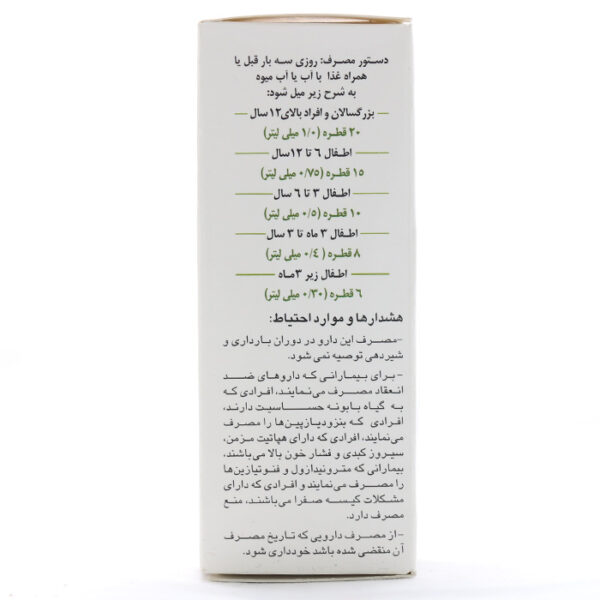 دستور مصرف: روزی سه بار قبل یا
همراه غذا با آب یا آب میوه
به شرح زیر میل شود:
بزرگسالان و افراد بالای ۱۲ سال
۲۰ قطره (۱/۰ میلی لیتر)
اطفال ۶ تا ۱۲ سال
۱۵ قطره (۰/۷۵ میلی لیتر)
اطفال ۳ تا ۶ سال
۱۰ قطره (۰/۵ میلی لیتر)
اطفال ۳ ماه تا ۳ سال
۸ قطره (۰/۴ میلی لیتر)
اطفال زیر ۳ ماه
۶ قطره (۰/۳۰ میلی لیتر)
هشدارها و موارد احتیاط:
-مصرف این دارو در دوران بارداری و
شیردهی توصیه نمی شود.
-برای بیمارانی که داروهای ضد
انعقاد مصرف می‌نمایند، افرادی که
به گیاه بابونه حساسیت دارند،
افرادی که بنزودیازپین‌ها را مصرف
می‌نمایند، افرادی که دارای هپاتیت مزمن،
سیروز کبدی و فشار خون بالا می‌باشند،
بیمارانی که مترونیدازول و فنوتیازین‌ها
را مصرف می‌نمایند و افرادی که دارای
مشکلات کیسه صفرا می‌باشند، منع
مصرف دارد.
-از مصرف دارویی که تاریخ مصرف
آن منقضی شده باشد خودداری شود.